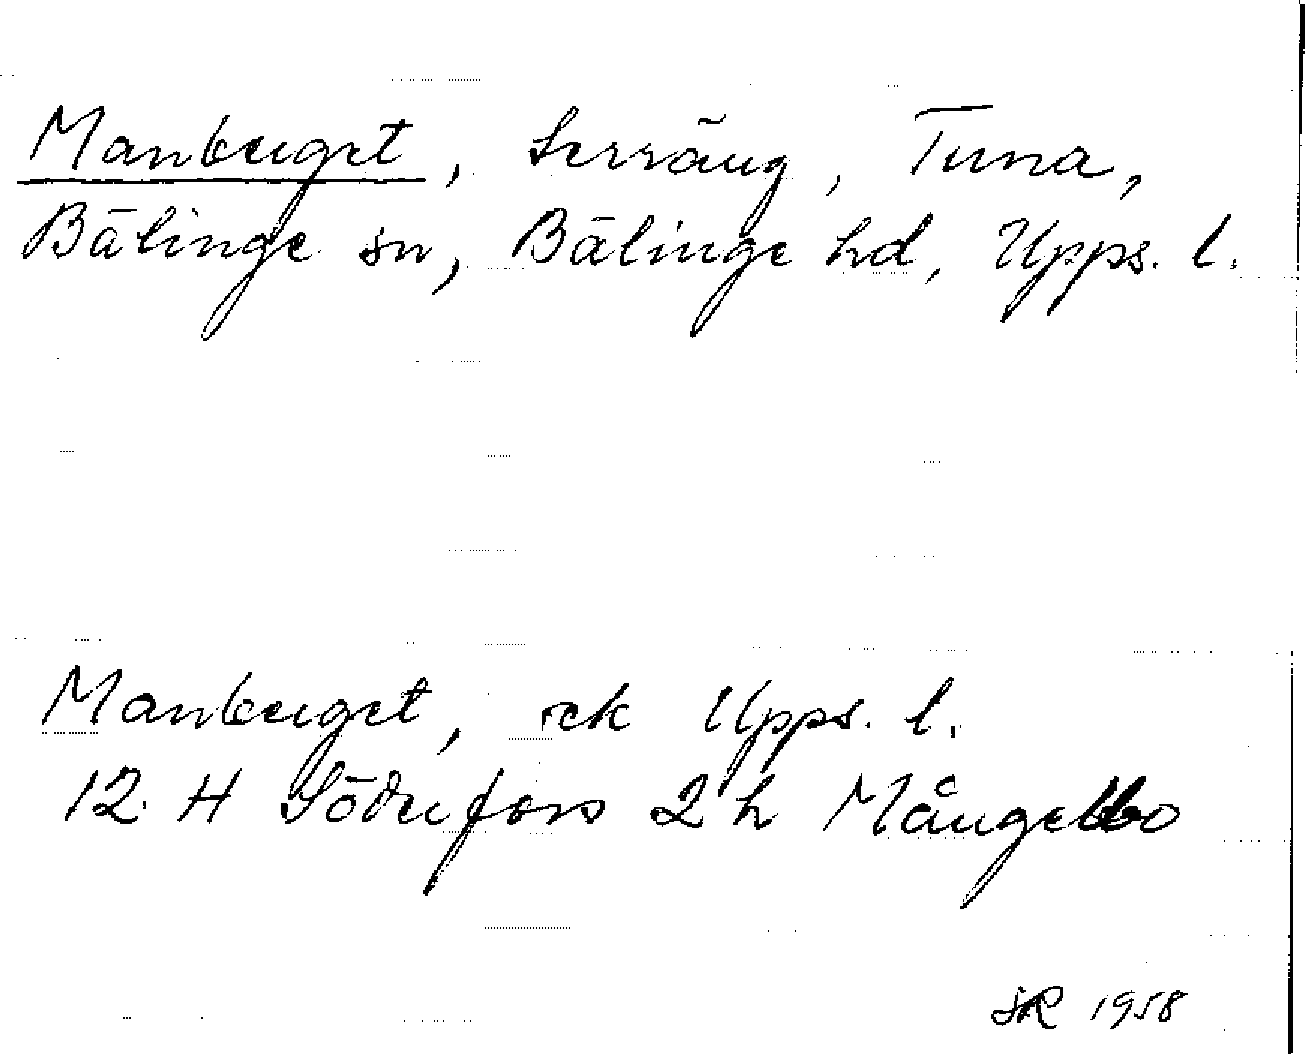 Manberget, terräng, Tuna,
Bälinge sn, Bälinge hd, Upps. l.
Manberget, ek Upps. l.
12 H Söderfors 2 h Mångelbo
SR 1958